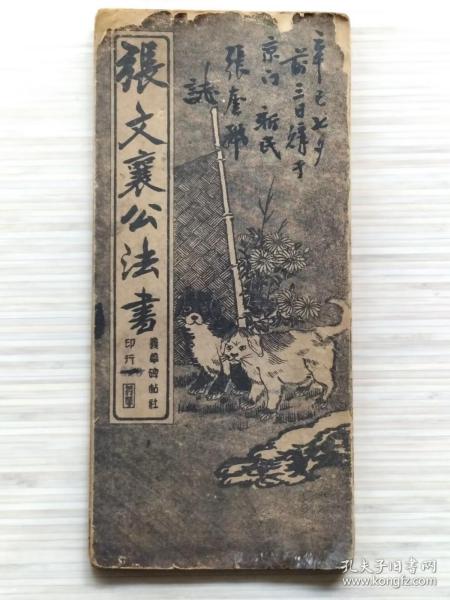 張文襄公法書
義華碑帖社
印行
辛巳七夕
前三日得于
京向 新民
張奎
誌
孔夫子旧书网
www.kongfz.com